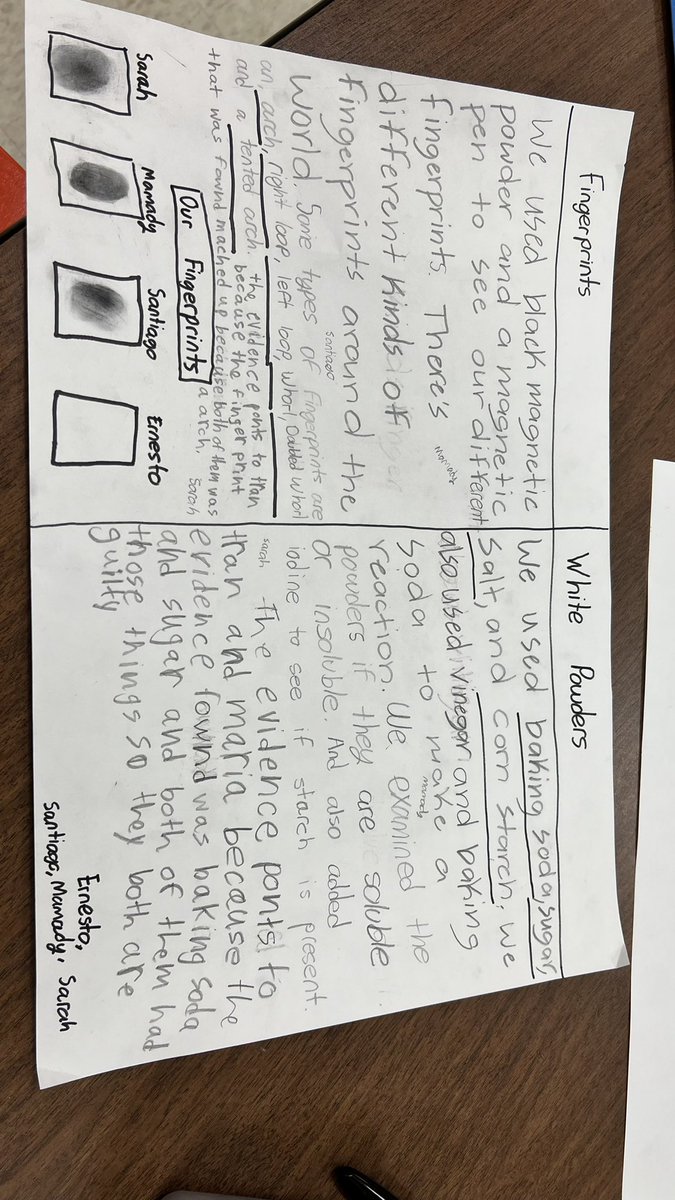 Fingerprints
We used black magnetic
powder and a magnetic
pen to see our different
fingerprints. There's
Mamady
different kinds of
fingerprints around the
Santiago
World. Some types of fingerprints are
an, arch, right loop, left loop, whorl, Doubled whorl
and a tented arch. the evidence ponts to tran
because the finger print
that was fownd mached up because both of them was
a arch.
Sarah
Our Fingerprints
Sarah
Mamady
Santiago
Ernesto
White Powders
We used baking soda, sugar,
salt, and corn starch, we
also used vinegar and baking
soda to make a
mamady
reaction. We examined the
powders if they are soluble
or insoluble. And also added
iodine to see if starch is present.
sarah
The evidence ponts to
tran and maria because the
evidence fownd was baking soda
and sugar and both of them had
those things so they both are
guilty
Ernesto,
Santiago, Mamady, Sarah